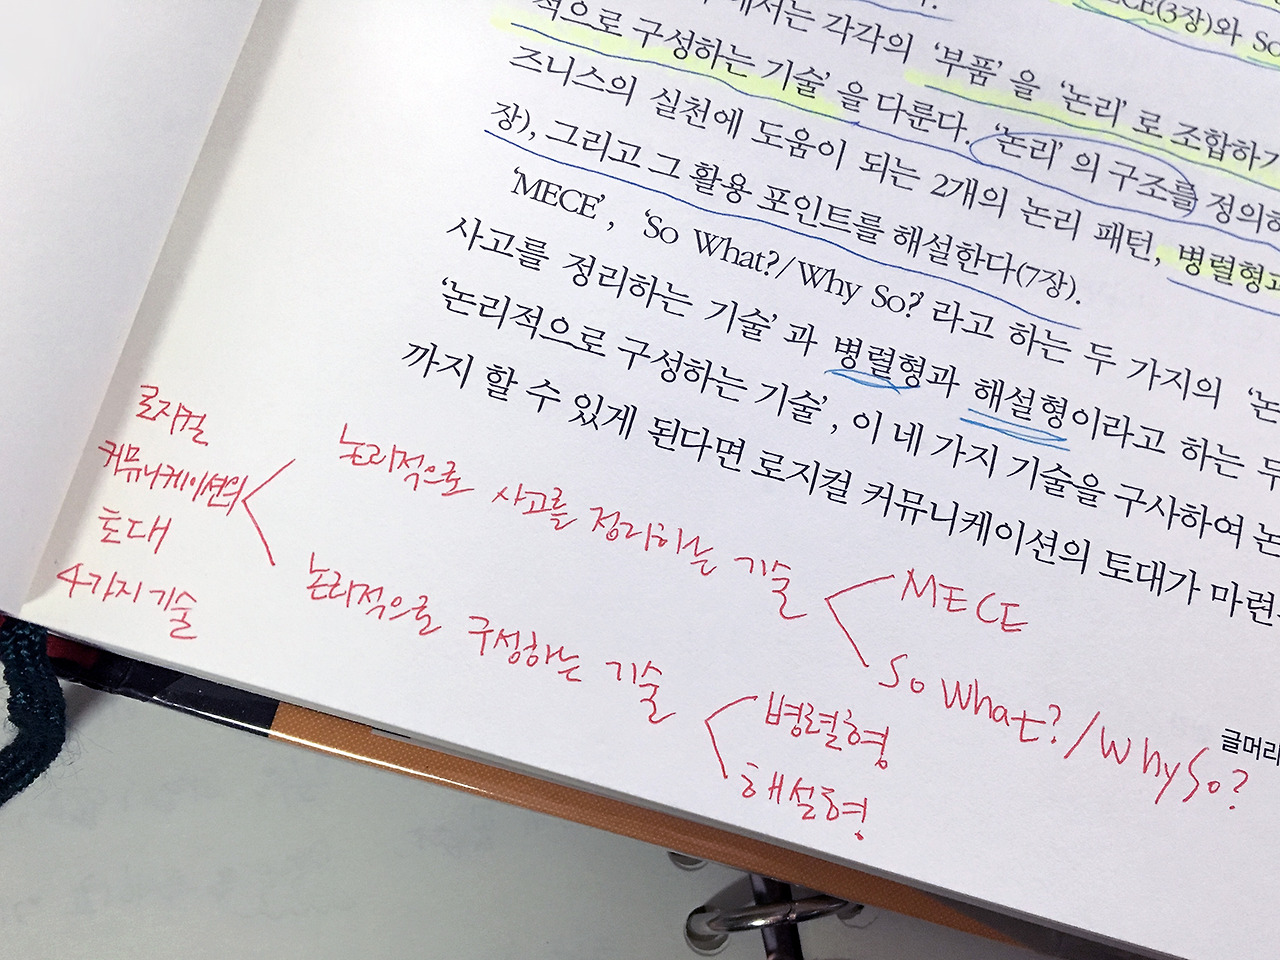 ECE(3장)와 So
에서는 각각의 ‘부품’을 ‘논리’로 조합하기
적으로 구성하는 기술’을 다룬다. ‘논리’의 구조를 정의하
즈니스의 실천에 도움이 되는 2개의 논리 패턴, 병렬형과
장), 그리고 그 활용 포인트를 해설한다(7장).
‘MECE’, ‘So What?/Why So?’라고 하는 두 가지의 ‘논
사고를 정리하는 기술’과 병렬형과 해설형이라고 하는 두
‘논리적으로 구성하는 기술’, 이 네 가지 기술을 구사하여 논
까지 할 수 있게 된다면 로지컬 커뮤니케이션의 토대가 마련
글머리
로지컬
커뮤니케이션의
토대
4가지 기술
논리적으로 사고를 정리하는 기술
MECE
So What?/Why So?
논리적으로 구성하는 기술
병렬형
해설형